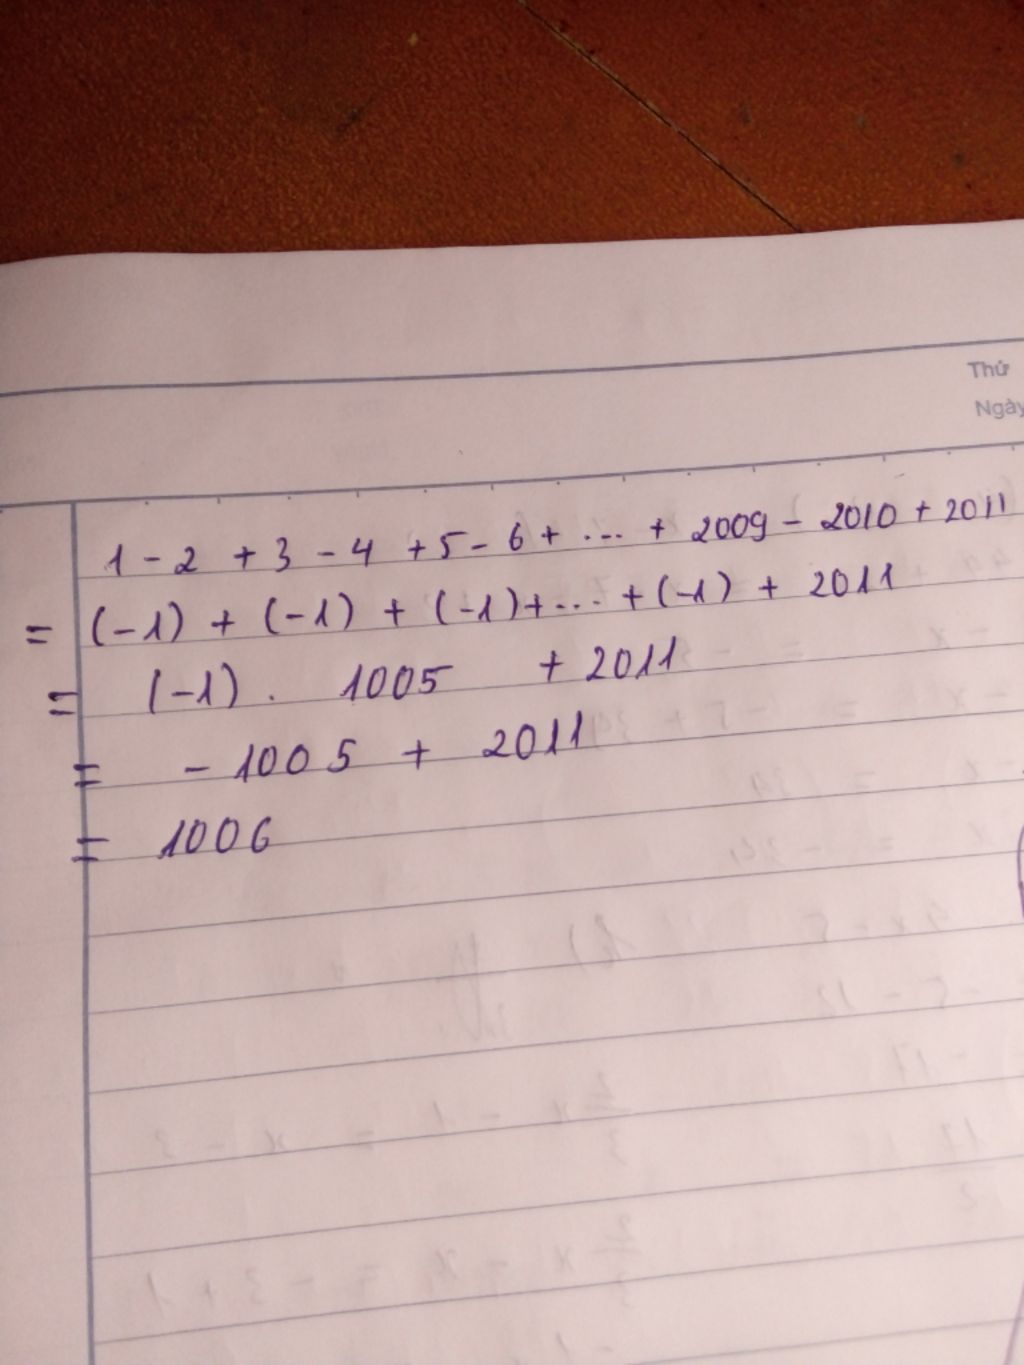 Thứ
Ngày
1 - 2 + 3 - 4 + 5 - 6 + ... + 2009 - 2010 + 2011
= (-1) + (-1) + (-1) + ... + (-1) + 2011
= (-1) . 1005 + 2011
= - 1005 + 2011
= 1006